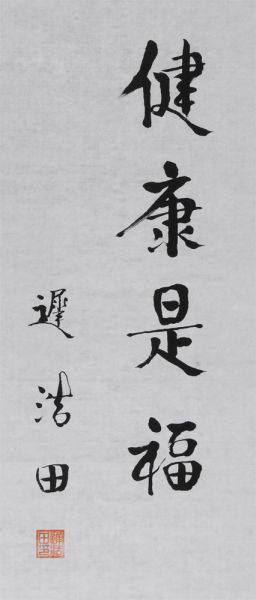 健康是福
遲浩田